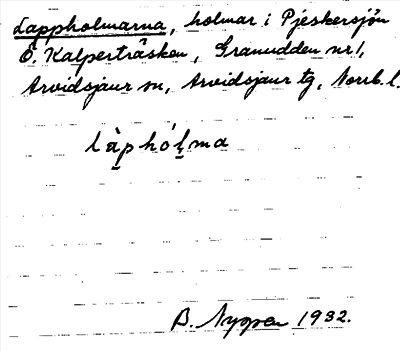 Lappholmarna, holmar i Pjeskersjön
Ö. Kalperträsken, Granudden nr 1,
Arvidsjaur sn, Arvidsjaur tg, Norrb. l.
làp̱hóḻma
B. Nyppen 1932.